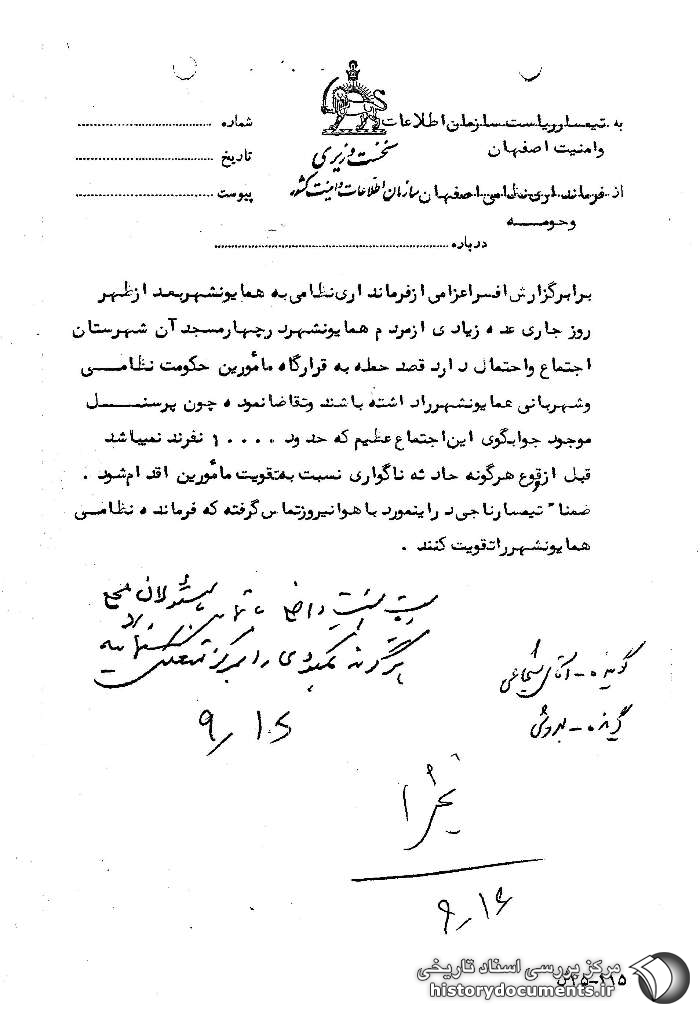 به تیمسار ریاست سازمان اطلاعات
وامنیت اصفهان
نخست وزیری
سازمان اطلاعات و امنیت کشور
از فرمانداری نظامی اصفهان
وحومه
شماره
تاریخ
پیوست
درباره
برابر گزارش افسر اعزامی از فرمانداری نظامی به همایونشهر بعد از ظهر
روز جاری عده زیادی از مردم همایونشهر در چهار مسجد آن شهرستان
اجتماع و احتمال دارد قصد حمله به قرارگاه مأمورین حکومت نظامی
وشهربانی همایونشهر را داشته باشند وتقاضا نموده چون پرسنل
موجود جوابگوی این اجتماع عظیم که حدود ۱۰۰۰۰ نفرند نمیباشد
قبل از وقوع هرگونه حادثه ناگواری نسبت به تقویت مأمورین اقدام شود .
ضمنا" تیمسار ناجی در اینمورد با هوانیروز تماس گرفته که فرمانده نظامی
همایونشهر را تقویت کنند .
گوینده - آقای شجاعی
گیرنده -
۹٫۱۶
۹٫۱۶
مرکز بررسی اسناد تاریخی
historydocuments.ir